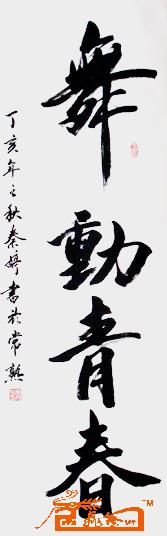 舞動青春
丁亥年之秋秦婷書於常熟
TM